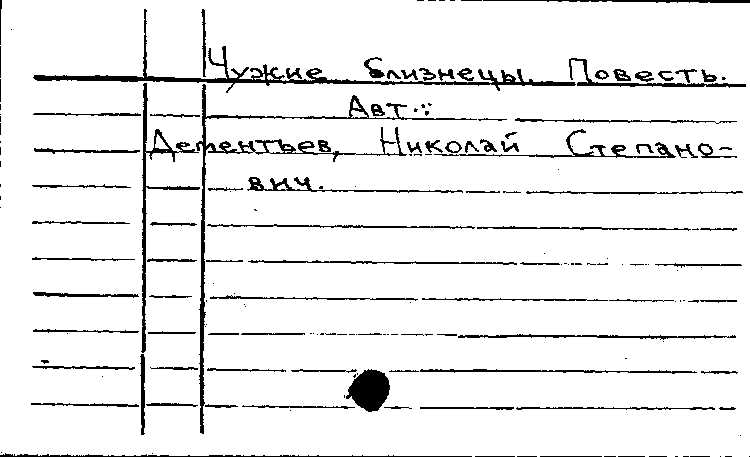 Чужие близнецы. Повесть.
Авт.:
Дементьев, Николай Степано-
вич.